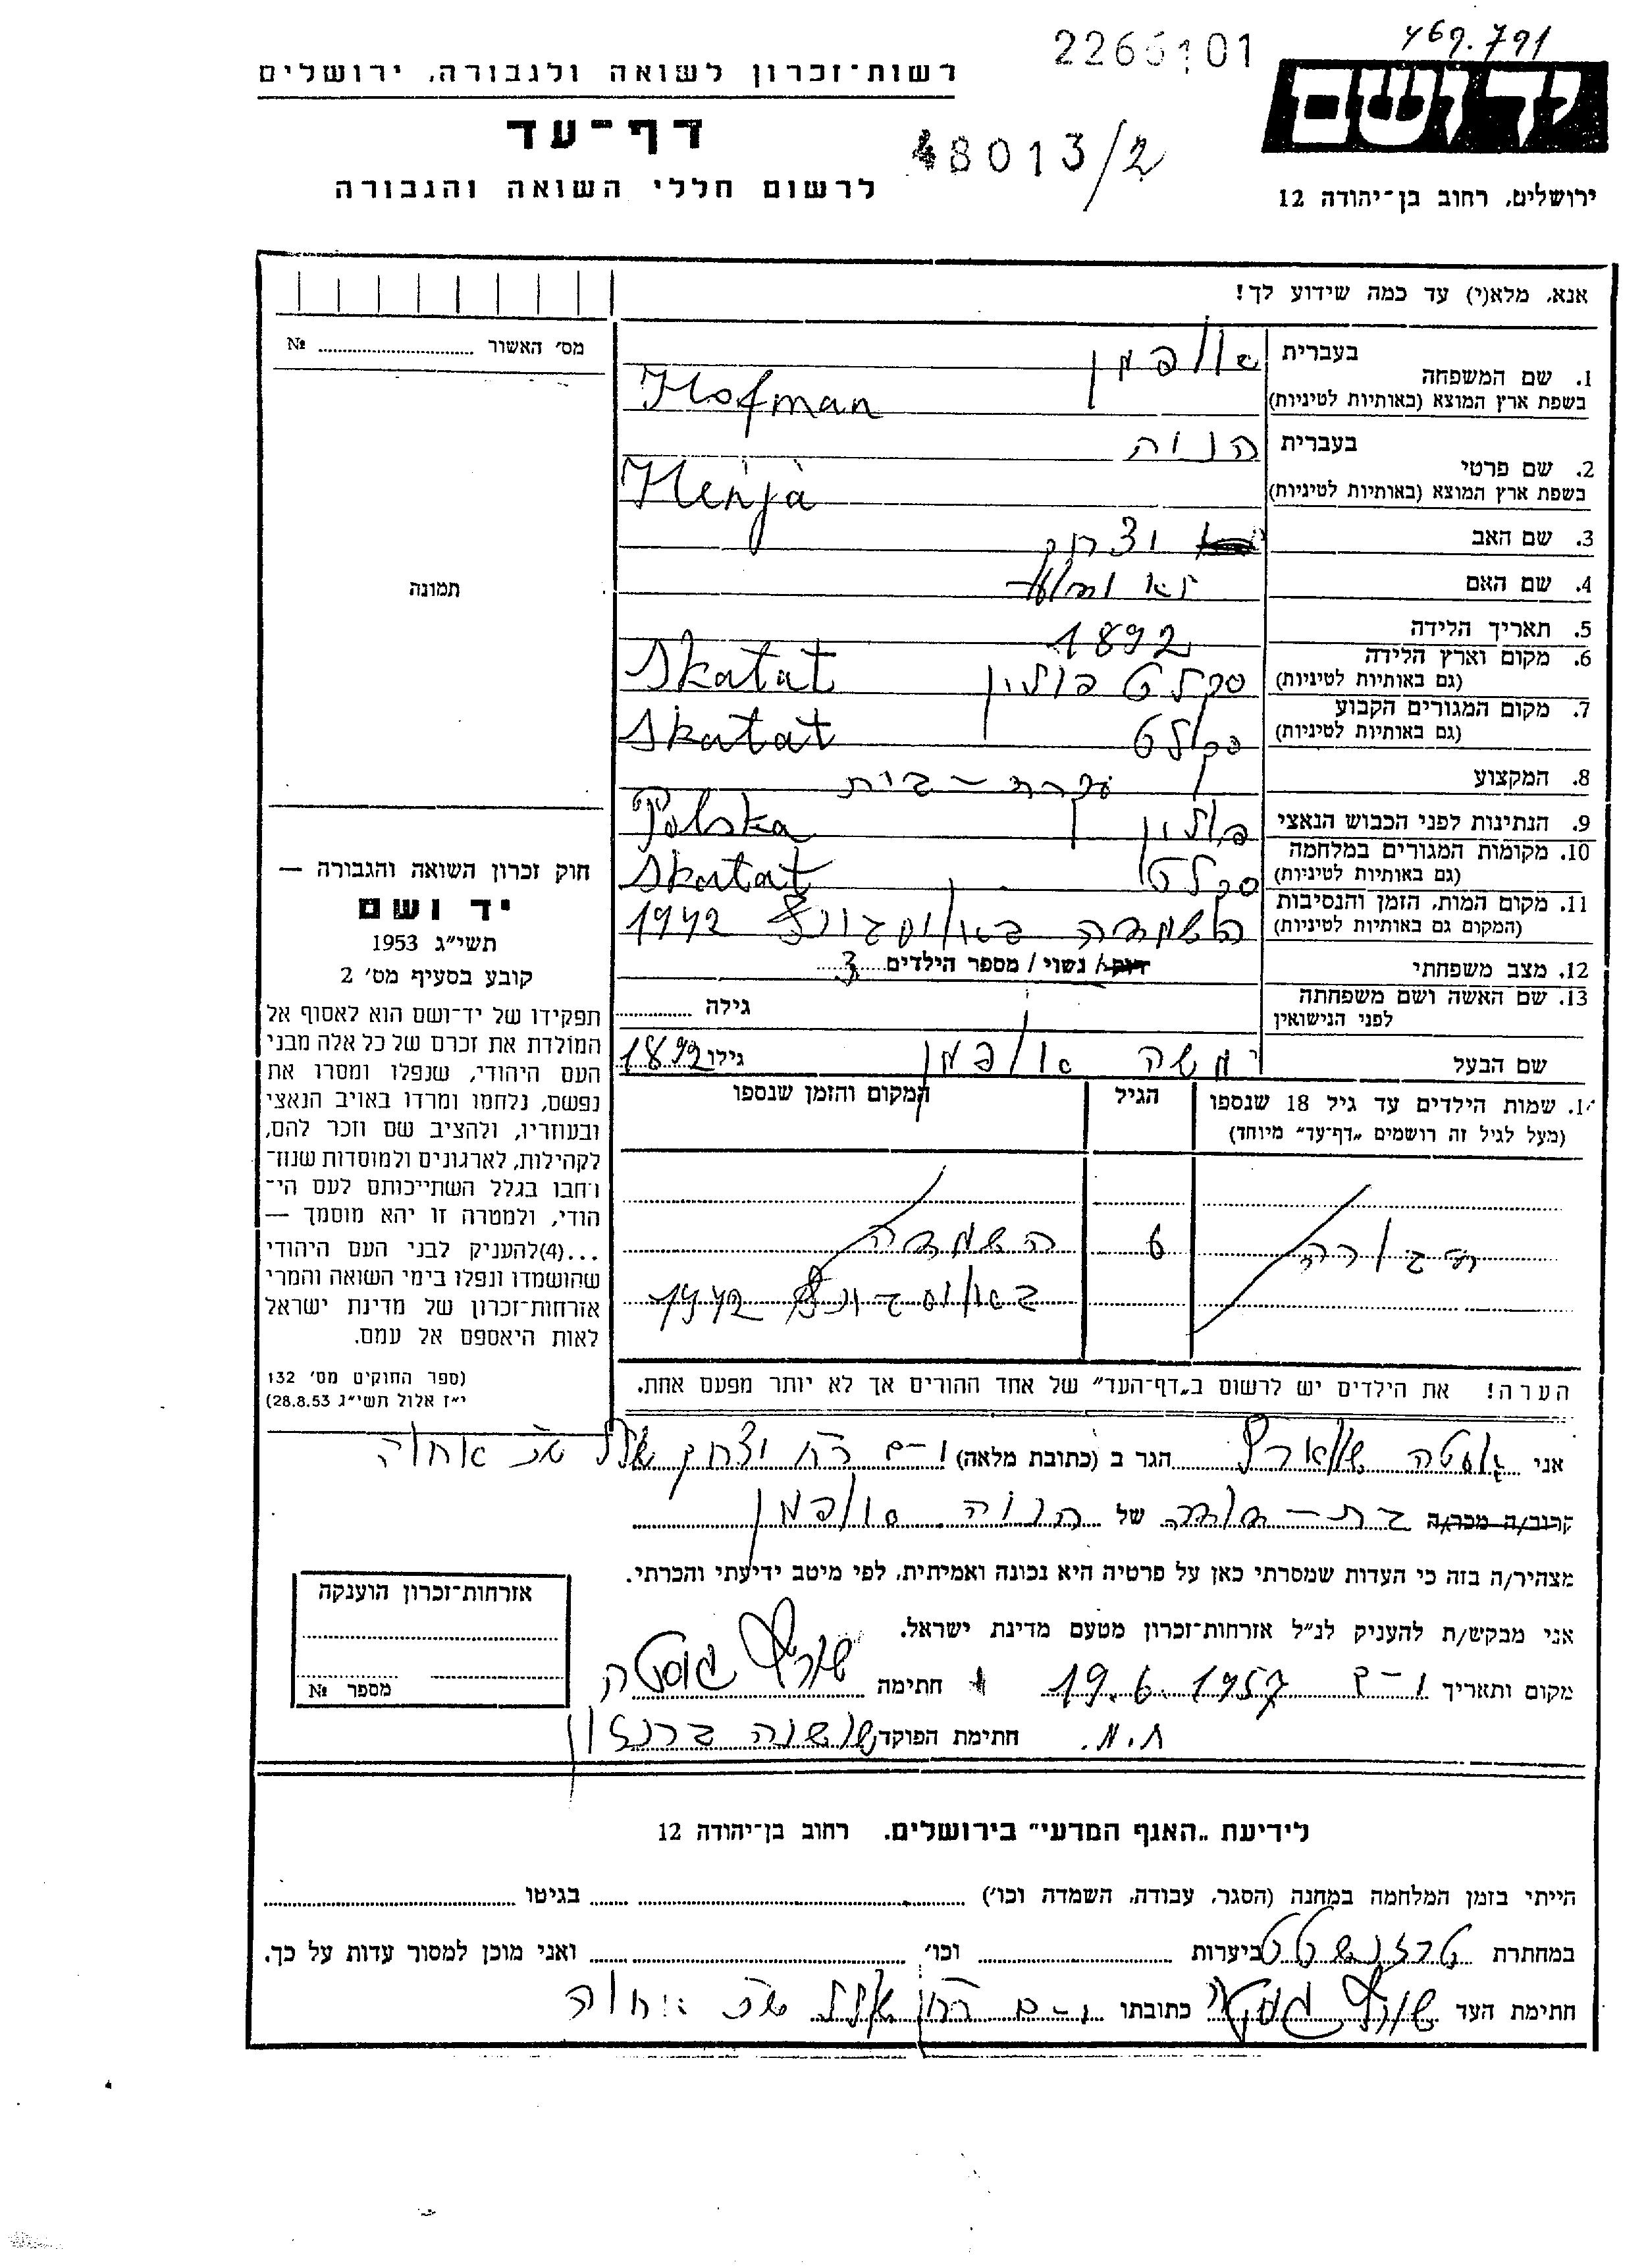 469.791
2266101
יד ושם
רשות־זכרון לשואה ולגבורה, ירושלים
דף־עד
48013/2
לרשום חללי השואה והגבורה
ירושלים, רחוב בן־יהודה 12
אנא, מלא(י) עד כמה שידוע לך!
מס׳ האשור № 
בעברית
1. שם המשפחה
בשפת ארץ המוצא (באותיות לטיניות) Hofman
בעברית הניה
2. שם פרטי
בשפת ארץ המוצא (באותיות לטיניות) Henja
3. שם האב יצחק
4. שם האם
תמונה
5. תאריך הלידה 1892
6. מקום וארץ הלידה
(גם באותיות לטיניות) סקלט פולין Skatat
7. מקום המגורים הקבוע
(גם באותיות לטיניות) סקלט Skatat
8. המקצוע עקרת-בית
9. הנתינות לפני הכבוש הנאצי פולין Polska
10. מקומות המגורים במלחמה
(גם באותיות לטיניות) סקלט Skatat
11. מקום המות, הזמן והנסיבות
(המקום גם באותיות לטיניות) השמדה 1942
12. מצב משפחתי רווק/ נשוי / מספר הילדים 3
13. שם האשה ושם משפחתה גילה
לפני הנישואין
שם הבעל משה גילו 1892
14. שמות הילדים עד גיל 18 שנספו הגיל המקום והזמן שנספו
(מעל לגיל זה רושמים „דף־עד״ מיוחד)
6 השמדה
1942
הערה! את הילדים יש לרשום ב„דף־העד״ של אחד ההורים אך לא יותר מפעם אחת.
חוק זכרון השואה והגבורה —
יד ושם
תשי״ג 1953
קובע בסעיף מס׳ 2
תפקידו של יד־ושם הוא לאסוף אל
המולדת את זכרם של כל אלה מבני
העם היהודי, שנפלו ומסרו את
נפשם, נלחמו ומרדו באויב הנאצי
ובעוזריו, ולהציב שם וזכר להם,
לקהילות, לארגונים ולמוסדות שנוז־
רחבו בגלל השתייכותם לעם הי־
הודי, ולמטרה זו יהא מוסמך —
...(4)להעניק לבני העם היהודי
שהושמדו ונפלו בימי השואה והמרי
אזרחות־זכרון של מדינת ישראל
לאות היאספם אל עמם.
(ספר החוקים מס׳ 132
י״ז אלול תשי״ג 28.8.53)
אני הגר ב (כתובת מלאה) י-ם
קרוב/ה מכר/ה של הניה
מצהיר/ה בזה כי העדות שמסרתי כאן על פרטיה היא נכונה ואמיתית, לפי מיטב ידיעתי והכרתי.
אני מבקש/ת להעניק לנ״ל אזרחות־זכרון מטעם מדינת ישראל.
מקום ותאריך י-ם 19.6.1957 חתימה
חתימת הפוקד שושנה
אזרחות־זכרון הוענקה
מספר №
לידיעת „האגף המדעי״ בירושלים, רחוב בן־יהודה 12
הייתי בזמן המלחמה במחנה (הסגר, עבודה, השמדה וכו׳) בגיטו
במחתרת ביערות וכו׳ ואני מוכן למסור עדות על כך.
חתימת העד כתובתו י-ם